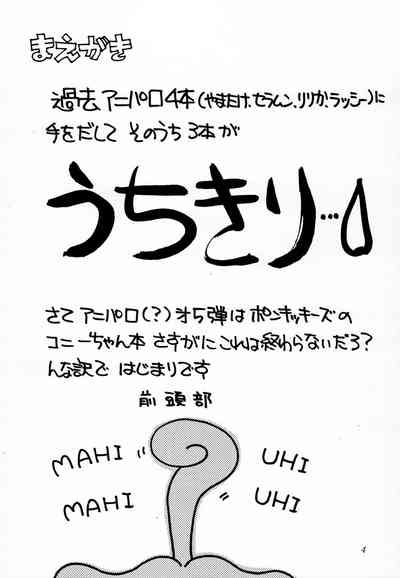 まえがき
過去アニパロ4本(やまたけ、セラムン、リリカ、ラッシー)に
手をだして そのうち 3本が
うちきり…
さて アニパロ(?)オ5弾は ポンキッキーズの
コニーちゃん本 さすがに これは終わらないだろ?
んな訳で はじまりです
前頭部
MAHI UHI
MAHI UHI
4